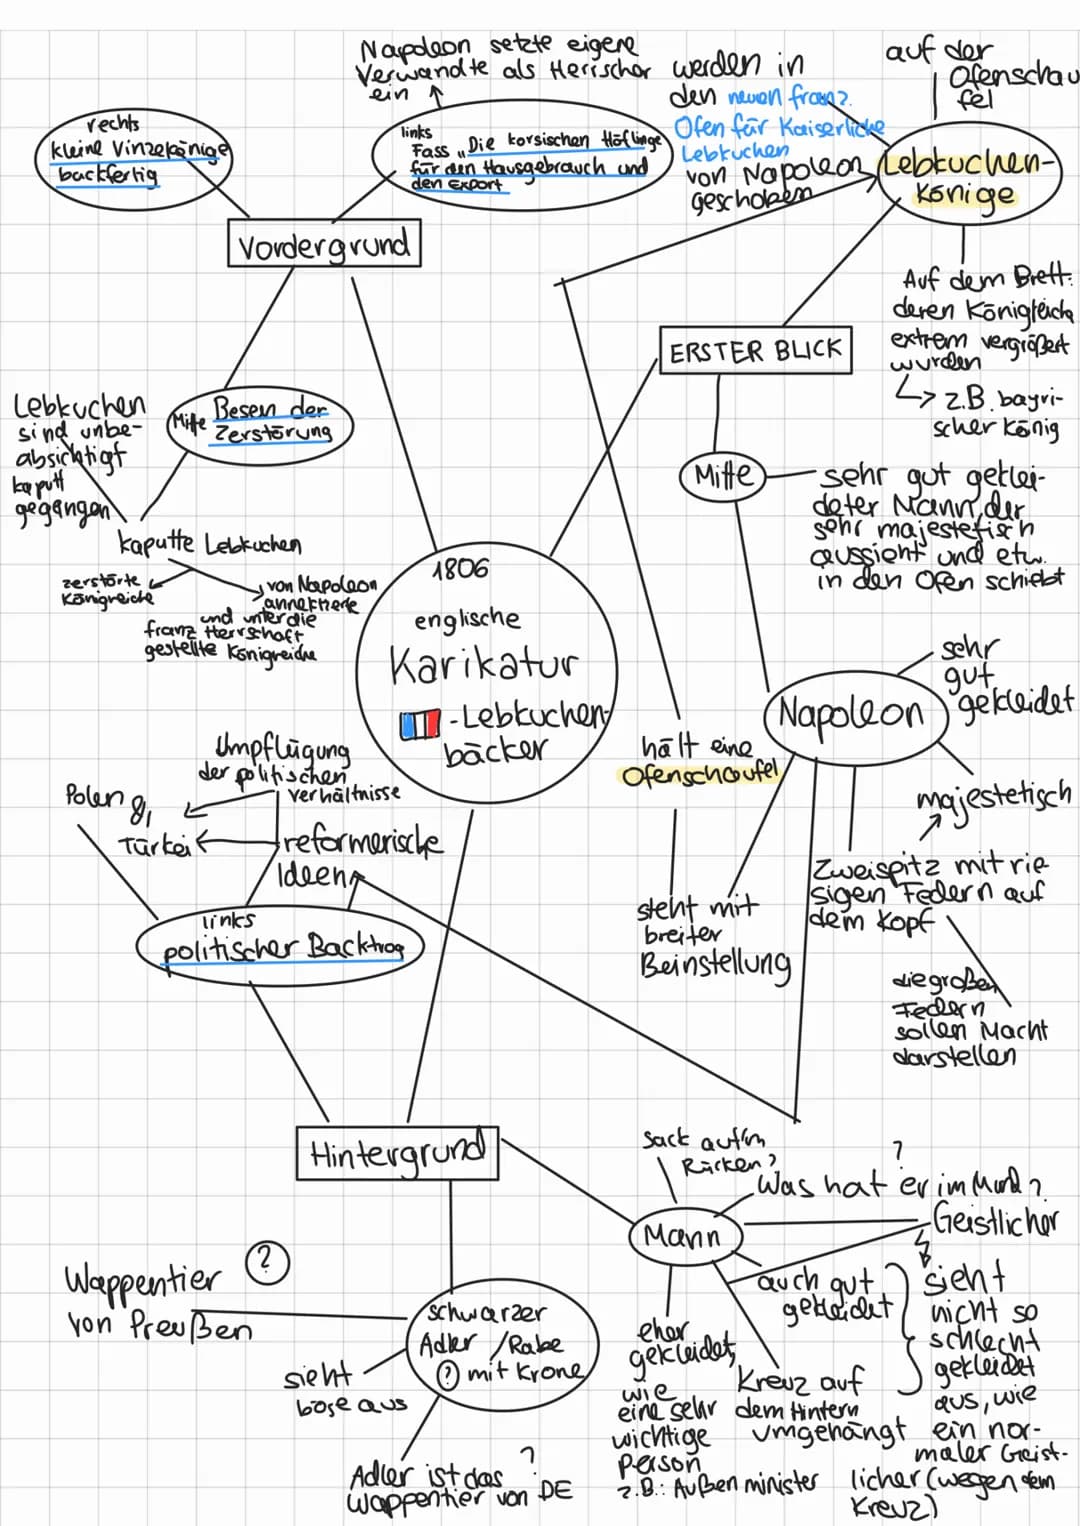 Napoleon setzte eigene
Verwandte als Herrscher
ein
rechts
kleine Vinzekönige
backfertig
links
Fass „Die korsischen Höflinge
für den Hausgebrauch und
den Export
werden in
den neuen franz.
Ofen für Kaiserliche
Lebkuchen
von Napoleon
geschoben
auf der
Ofenschau
fel
Lebkuchen-
Könige
Vordergrund
Auf dem Brett:
deren Königreiche
extrem vergrößert
wurden
↳ z.B. bayri-
scher König
ERSTER BLICK
Lebkuchen
sind unbe-
absichtigt
kaputt
gegangen
Mitte Besen der
Zerstörung
Mitte
sehr gut geklei-
deter Mann, der
sehr majestetisch
aussieht und etw.
in den Ofen schiebt
kaputte Lebkuchen
zerstörte
Königreiche
von Napoleon
annektierte
und unter die
franz Herrschaft
gestellte Königreiche
1806
englische
Karikatur
-Lebkuchen-
bäcker
Napoleon
sehr
gut
gekleidet
majestetisch
hält eine
Ofenschaufel
Umpflügung
der politischen
Verhältnisse
Polen &
Türkei
reformerische
Ideen
links
politischer Backtrog
steht mit
breiter
Beinstellung
Zweispitz mit rie-
sigen Federn auf
dem Kopf
die großen
Federn
sollen Macht
darstellen
Hintergrund
Sack auf'm
Rücken?
?
Was hat er im Mund?
Mann
Geistlicher
auch gut
gekleidet
sieht
nicht so
schlecht
gekleidet
aus, wie
ein nor-
maler Geist-
licher (wegen dem
Kreuz)
eher
gekleidet,
wie
eine sehr
wichtige
Person
z.B.: Außenminister
Kreuz auf
dem Hintern
umgehängt
Wappentier ?
von Preußen
schwarzer
Adler /Rabe
? mit Krone
sieht
böse aus
?
Adler ist das
Wappentier von DE